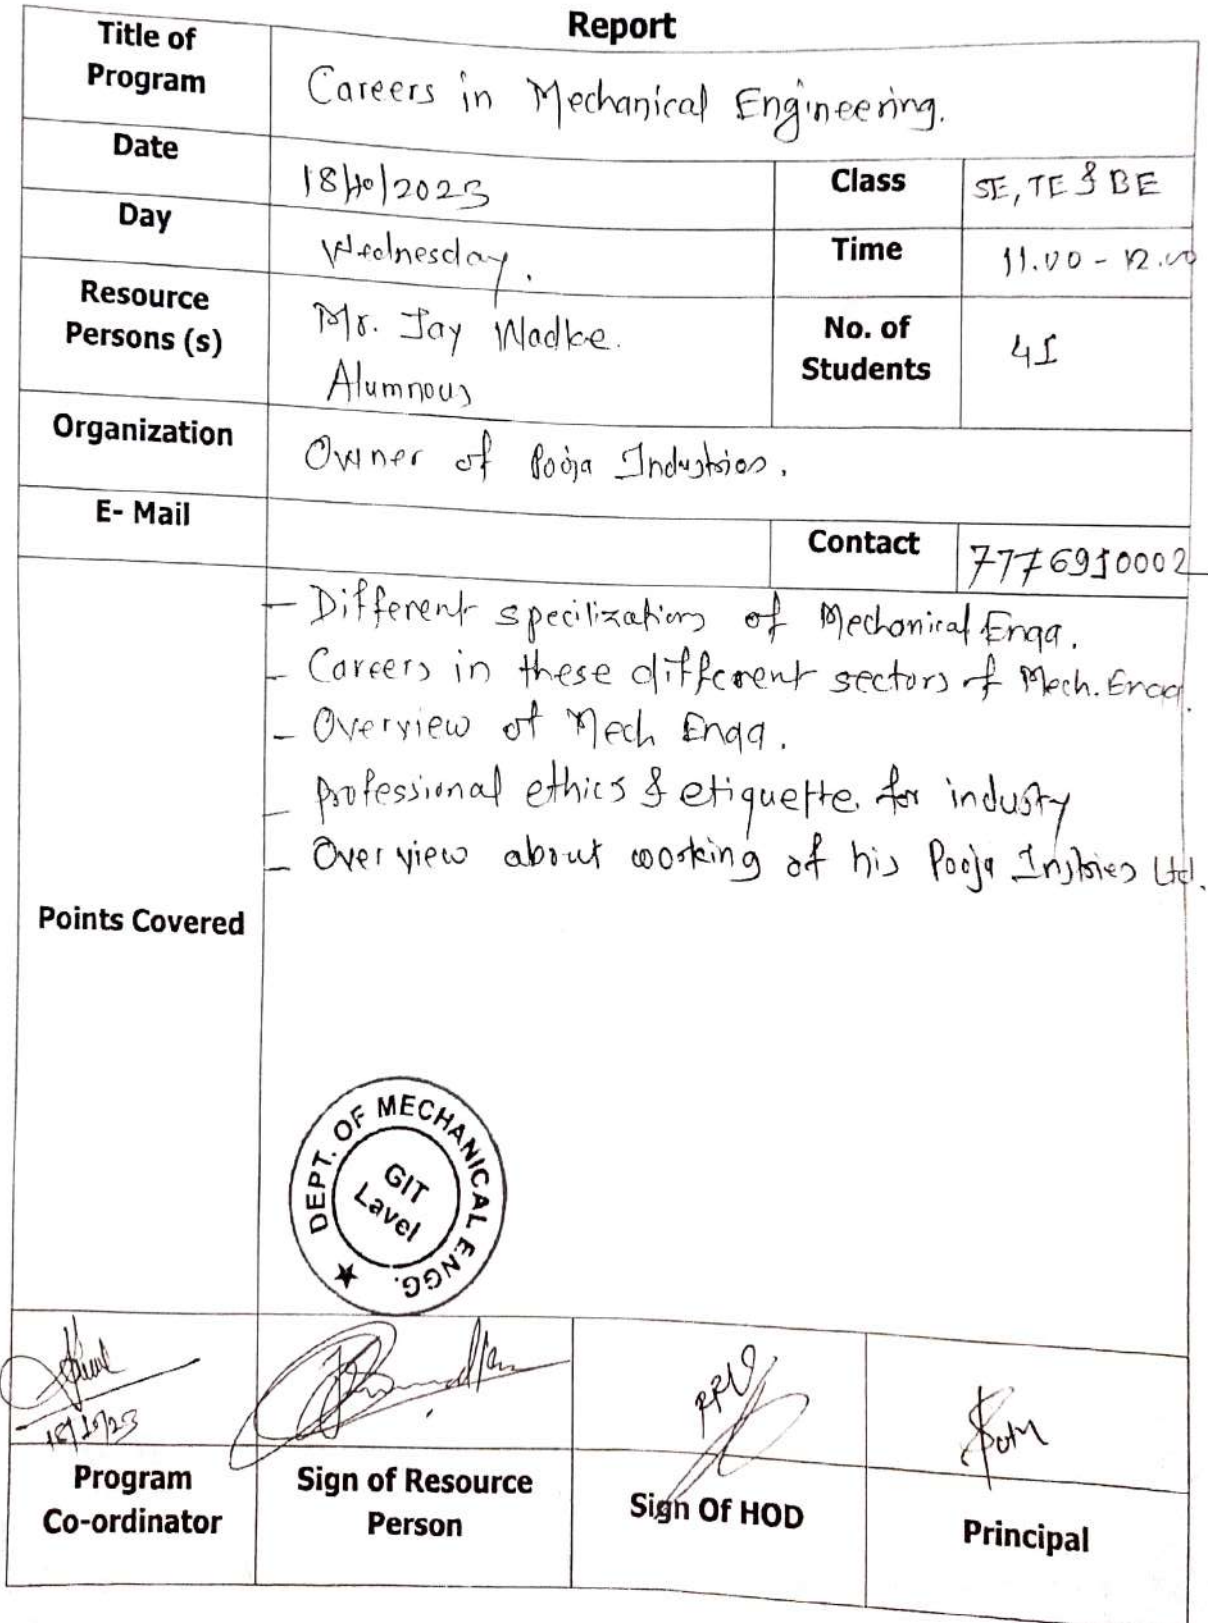 Report
Title of
Program
Careers in Mechanical Engineering.
Date
18/10/2023
Class
SE, TE & BE
Day
Wednesday.
Time
11.00 - 12.00
Resource
Persons (s)
Mr. Jay Wadke.
Alumnous
No. of
Students
41
Organization
Owner of Pooja Industries.
E- Mail
Contact
7776910002
Points Covered
- Different specilizations of Mechanical Engg.
- Careers in these different sectors of Mech. Engg.
- Overview of Mech Engg.
- professional ethics & etiquette for industry
- Over view about working of his Pooja Instries Ltd.
DEPT. OF MECHANICAL ENGG.
GIT
Lavel
18/10/23
Program
Co-ordinator
Sign of Resource
Person
Sign Of HOD
Principal